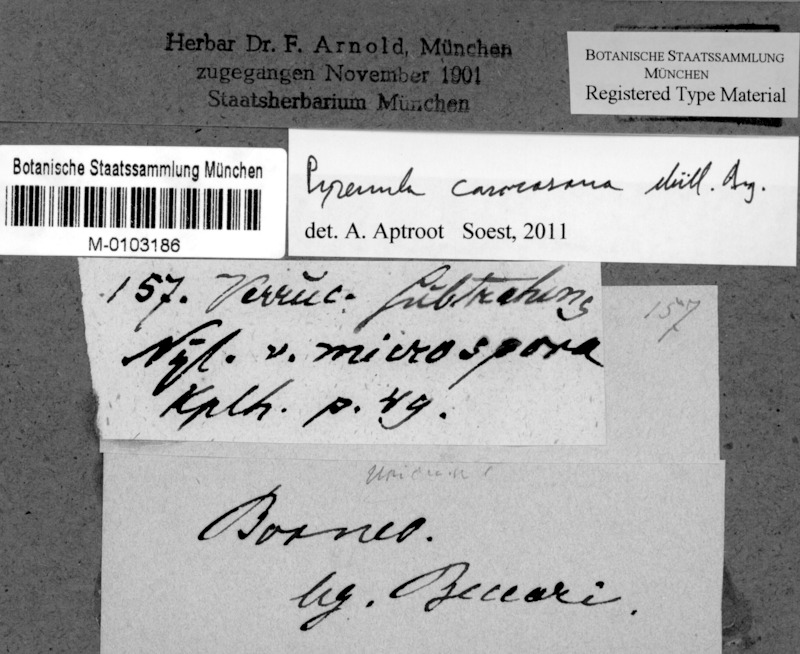 Herbar Dr. F. Arnold, München
zugegangen November 1901
Staatsherbarium München
BOTANISCHE STAATSSAMMLUNG
MÜNCHEN
Registered Type Material
Botanische Staatssammlung München
M-0103186
Pyrenula caracasana Müll. Arg.
det. A. Aptroot Soest, 2011
157. Verruc. subtrahens
Nyl. v. microspora
Kplh. p. 49.
157
Borneo.
lg. Beccari.